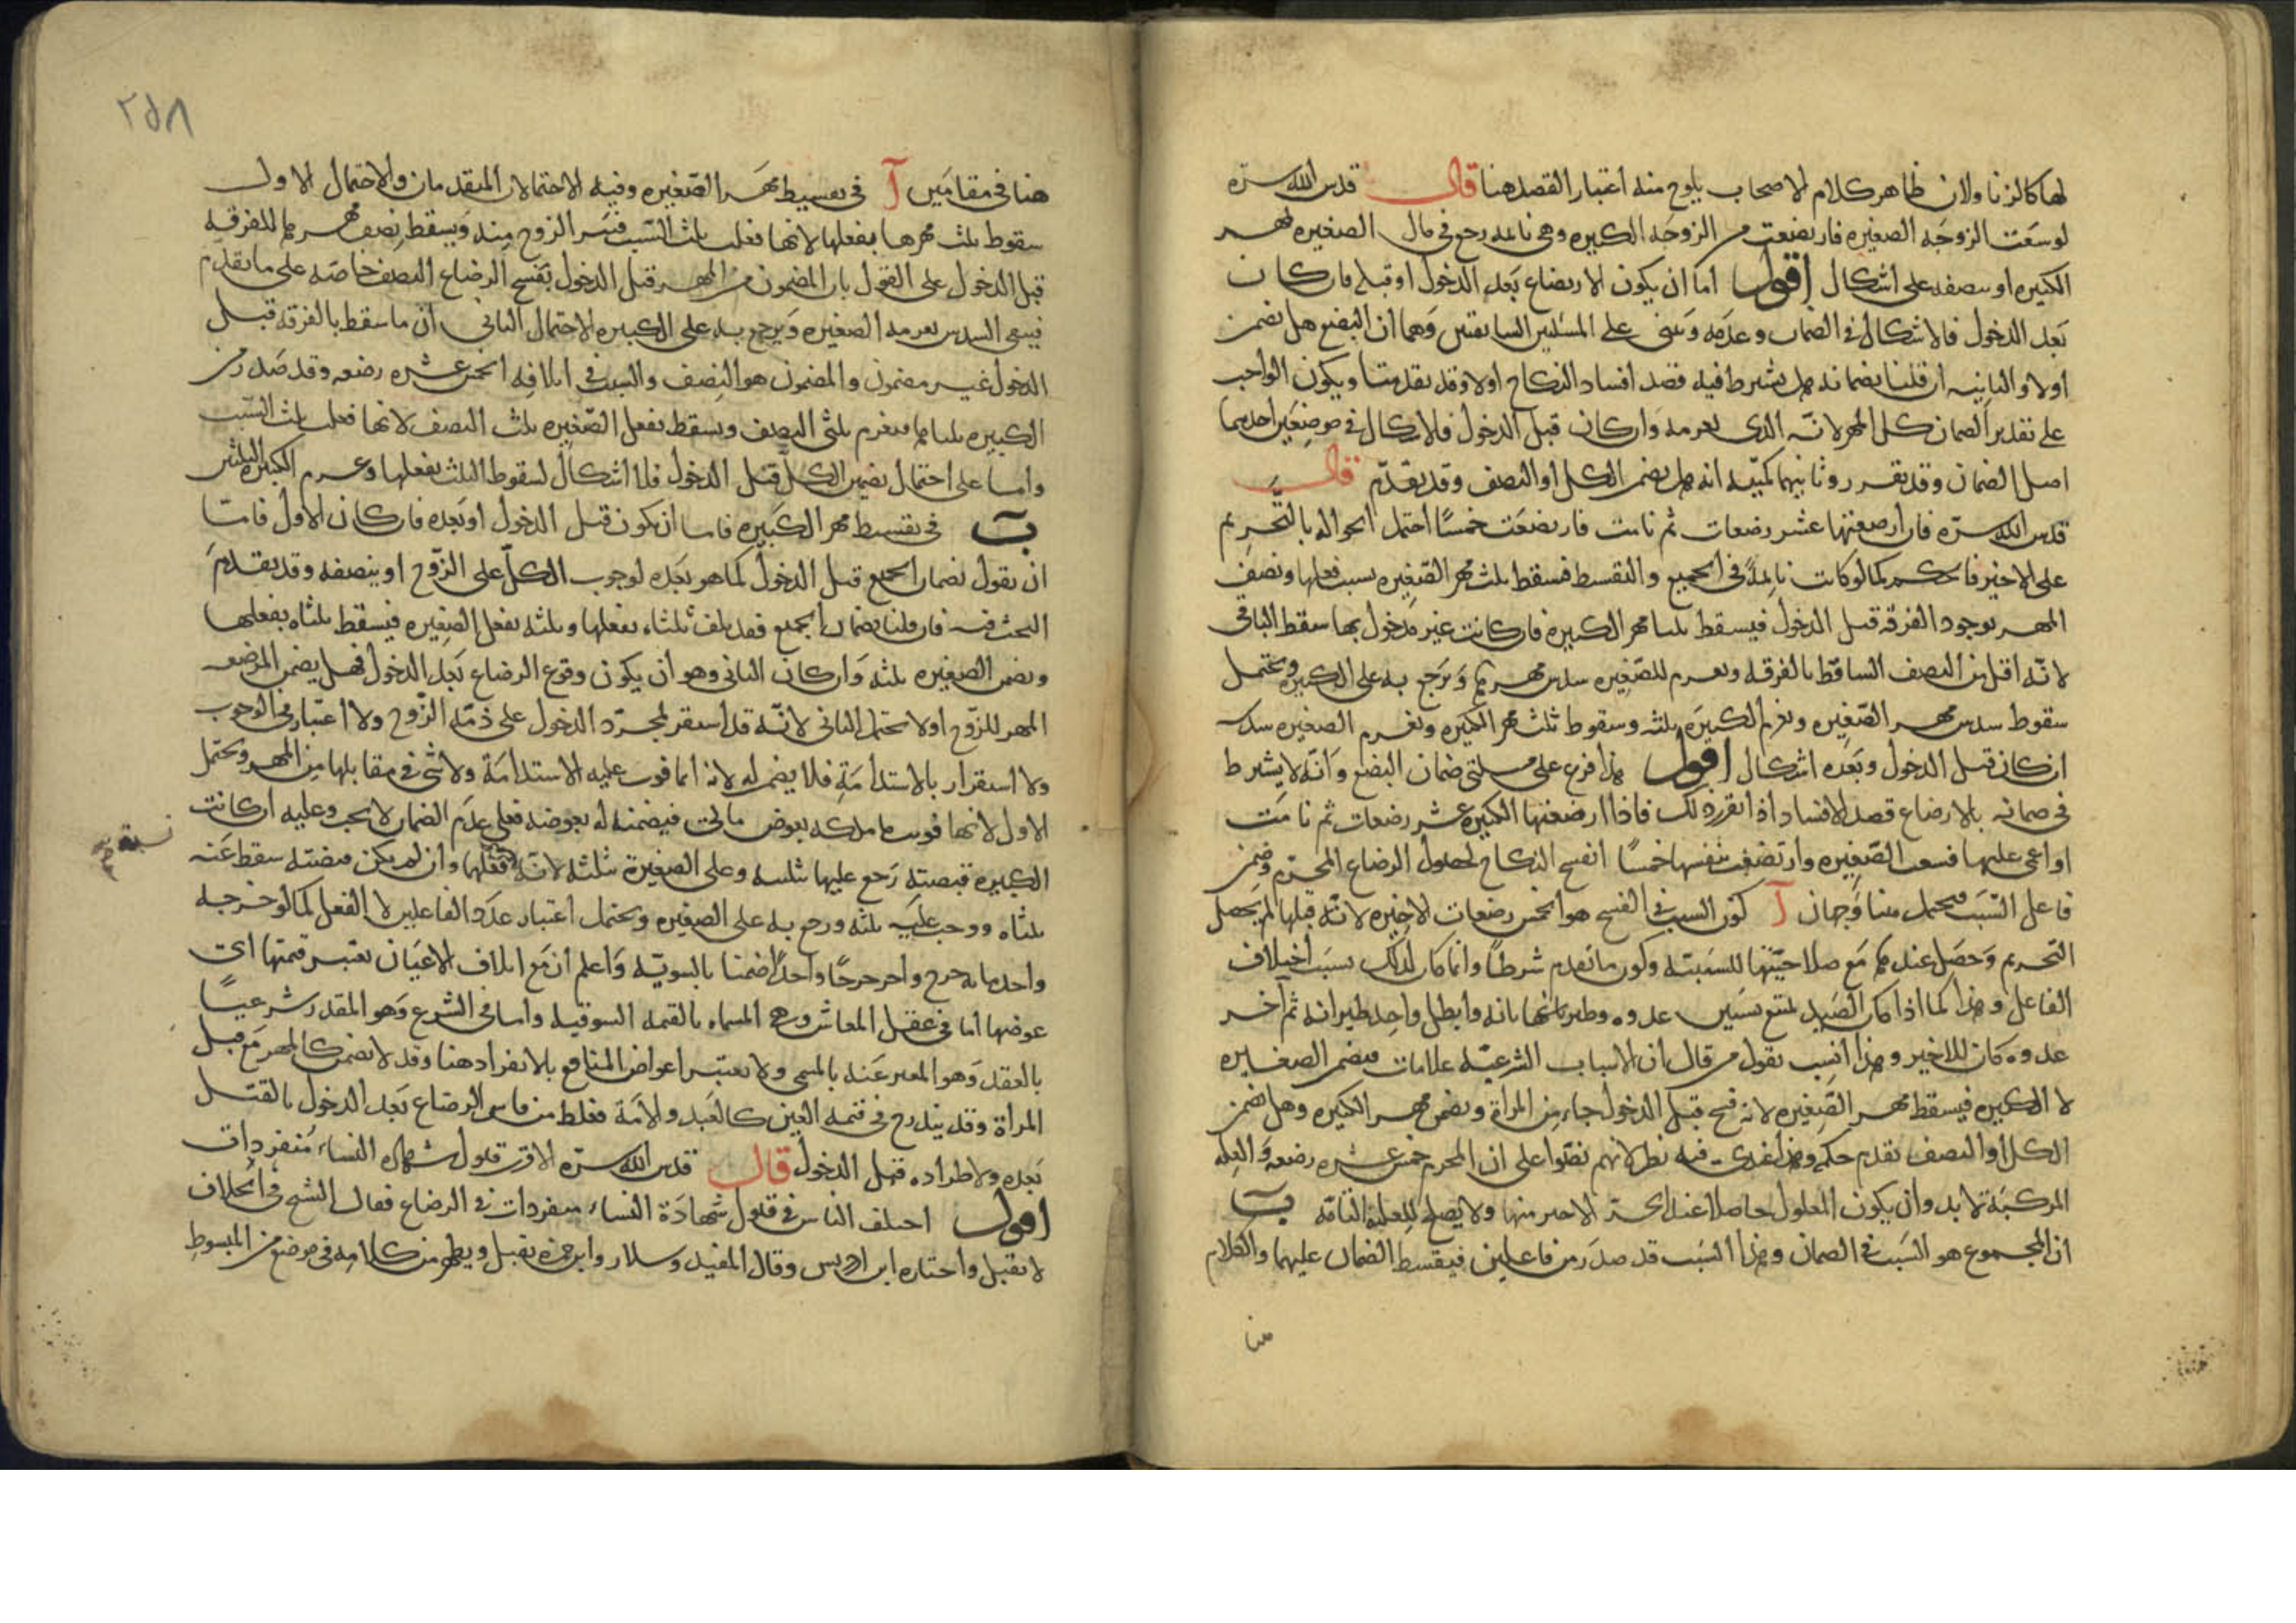 لها كالزنا ولان ظاهر كلام الاصحاب يلوح منه اعتبار القصد هنا قال قدس الله سره
لو سعت الزوجه الصغيره فارتضعت من الزوجه الكبيره وهى نائمه رجع فى مال الصغيره بمهر
الكبيره او بنصفه على اشكال اقول اما ان يكون الارتضاع بعد الدخول او قبله فان كان
بعد الدخول فالاشكال فى الضمان وعدمه ومبنى على المسئلتين السابقتين وهما ان البضع هل يضمن
اولا والثانيه ان قلنا بضمانه هل يشترط فيه قصد افساد النكاح اولا وقد تقدمتا ويكون الواجب
على تقدير الضمان كل المهر لانه الذى يغرمه وان كان قبل الدخول فالاشكال فى موضعين احدهما
اصل الضمان وقد تقرر وثانيهما كميته انه هل يضمن الكل او النصف وقد تقدم قال
قدس الله سره فان ارضعتها عشر رضعات ثم نامت فارتضعت خمسا احتمل الحواله بالتحريم
على الاخير فالحكم كما لو كانت نائمة فى الجميع والتقسط فسقط ثلث مهر الصغيره بسبب فعلها ونصف
المهر بوجود الفرقه قبل الدخول فيسقط ثلثا مهر الكبيره فان كانت غير مدخول بها سقط الباقى
لانه اقل من النصف الساقط بالفرقه ويغرم للصغيره سدس مهرها ويرجع به على الكبيره ويحتمل
سقوط سدس مهر الصغيره وتغريم الكبيره ثلثه وسقوط ثلث مهر الكبيره وتغرم الصغيره سدسه
ان كان قبل الدخول وبعده اشكال اقول هذا فرع على مسئلتى ضمان البضع وانه لا يشترط
فى ضمانه بالارضاع قصد الافساد اذا تقرر ذلك فاذا ارضعتها الكبيره عشر رضعات ثم نامت
او اغمى عليها فسعت الصغيره وارتضعت بنفسها خمسا انفسخ النكاح لحصول الرضاع المحرم وضمن
فاعل السبب فيحتمل هنا وجهان آ كون السبب فى الفسخ هو الخمس رضعات الاخيره لانه قبلها لم يحصل
التحريم وحصل عندها مع صلاحيتها للسببية وكون ما تقدم شرطا وانما كان كذلك بسبب اختلاف
الفاعل وهذا كما اذا كان الصيد يمتنع بسببين عدوه وطيرانه وابطل واحد طيرانه ثم آخر
عدوه كان للاخير وهذا انسب بقول من قال ان الاسباب الشرعيه علامات فيضمن الصغيره
لا الكبيره فيسقط مهر الصغيره لانه فسخ قبل الدخول جاء من المراة وتضمن مهر الكبيره وهل تضمن
الكل او النصف تقدم حكمه وهذا عندى فيه نظر لانهم نصوا على ان المحرم خمس عشره رضعه والعله
المركبة لابد وان يكون المعلول حاصلا عند الجزء الاخير منها ولا يصلح للعلية التامه ب
ان المجموع هو السبب فى الضمان وهذا السبب قد صدر من فاعلين فيقسط الضمان عليهما والكلام
هنا
٢٥٨
هنا فى مقامين آ فى تقسيط مهر الصغيره وفيه الاحتمالان المتقدمان والاحتمال الاول
سقوط ثلث مهرها بفعلها لانها فعلت ثلث السبب فيبرا الزوج منه ويسقط نصف مهرها للفرقه
قبل الدخول على القول بان المضمون من المهر قبل الدخول بفسخ الرضاع النصف خاصه على ما تقدم
فيبقى السدس يغرمه الصغيره ويرجع به على الكبيره الاحتمال الثانى ان ما سقط بالفرقه قبل
الدخول غير مضمون والمضمون هو النصف والسبب فى اتلافه الخمس عشره رضعه وقد صدر من
الكبيره ثلثاها فيغرم ثلثى النصف ويسقط بفعل الصغيره ثلث النصف لانها فعلت ثلث السبب
واما على احتمال تضمين الكل قبل الدخول فلا اشكال لسقوط الثلث بفعلها وغرم الكبيره الثلثين
ب فى تقسيط مهر الكبيره فاما ان يكون قبل الدخول او بعده فان كان الاول فاما
ان نقول بضمان الجميع قبل الدخول كما هو بعده لوجوب الكل على الزوج او بنصفه وقد تقدم
البحث فيه فان قلنا بضمان الجميع فقد تلف ثلثاه بفعلها وثلثه بفعل الصغيره فيسقط ثلثاه بفعلها
وتضمن الصغيره ثلثه وان كان الثانى وهو ان يكون وقوع الرضاع بعد الدخول فهل يضمن المرضعه
المهر للزوج اولا يحتمل الثانى لانه قد استقر بمجرد الدخول على ذمه الزوج ولا اعتبار فى الوجوب
ولا استقرار بالاستدامة فلا يضمن له لانه انما فوت عليه الاستدامة ولا شئ فى مقابلها من المهر ويحتمل
الاول لانها فوتت ما ملكه بعوض مالى فيضمنه له بعوضه فعلى عدم الضمان لا بحث وعليه ان كانت
الكبيره قبضته رجع عليها بثلثيه وعلى الصغيرة بثلثه لانه فعلها وان لم يكن قبضته سقط عنه
ثلثاه ووجب عليه ثلثه ورجع به على الصغيره ويحتمل اعتبار عدد الفاعلين لا الفعل كما لو جرحه
واحد مايه جرح وآخر جرحا واحدا ضمنا بالسوية واعلم ان مع اتلاف الاعيان نعتبر قيمتها اى
عوضها اما فى عقل المعاش وهى المسماه بالقيمه السوقيه واما فى الشرع وهو المقدر شرعيا
بالعقد وهو المعبر عنه بالمسمى ولا يعتبر اعواض المنافع بالانفراد هنا وقد لا يضمن كالمهر مع قبل
المراة وقد يندرج فى قيمه العين كالعبد والامة فغلط من قاس الرضاع بعد الدخول بالقتل
بعده ولاطراده قبل الدخول قال قدس الله سره الاقرب قبول شهاده النساء منفردات
اقول اختلف الناس فى قبول شهادة النساء منفردات فى الرضاع فقال الشيخ فى الخلاف
لا تقبل واختاره ابن ادريس وقال المفيد وسلار وابن حمزه تقبل ويظهر من كلامه فى موضع من المبسوط